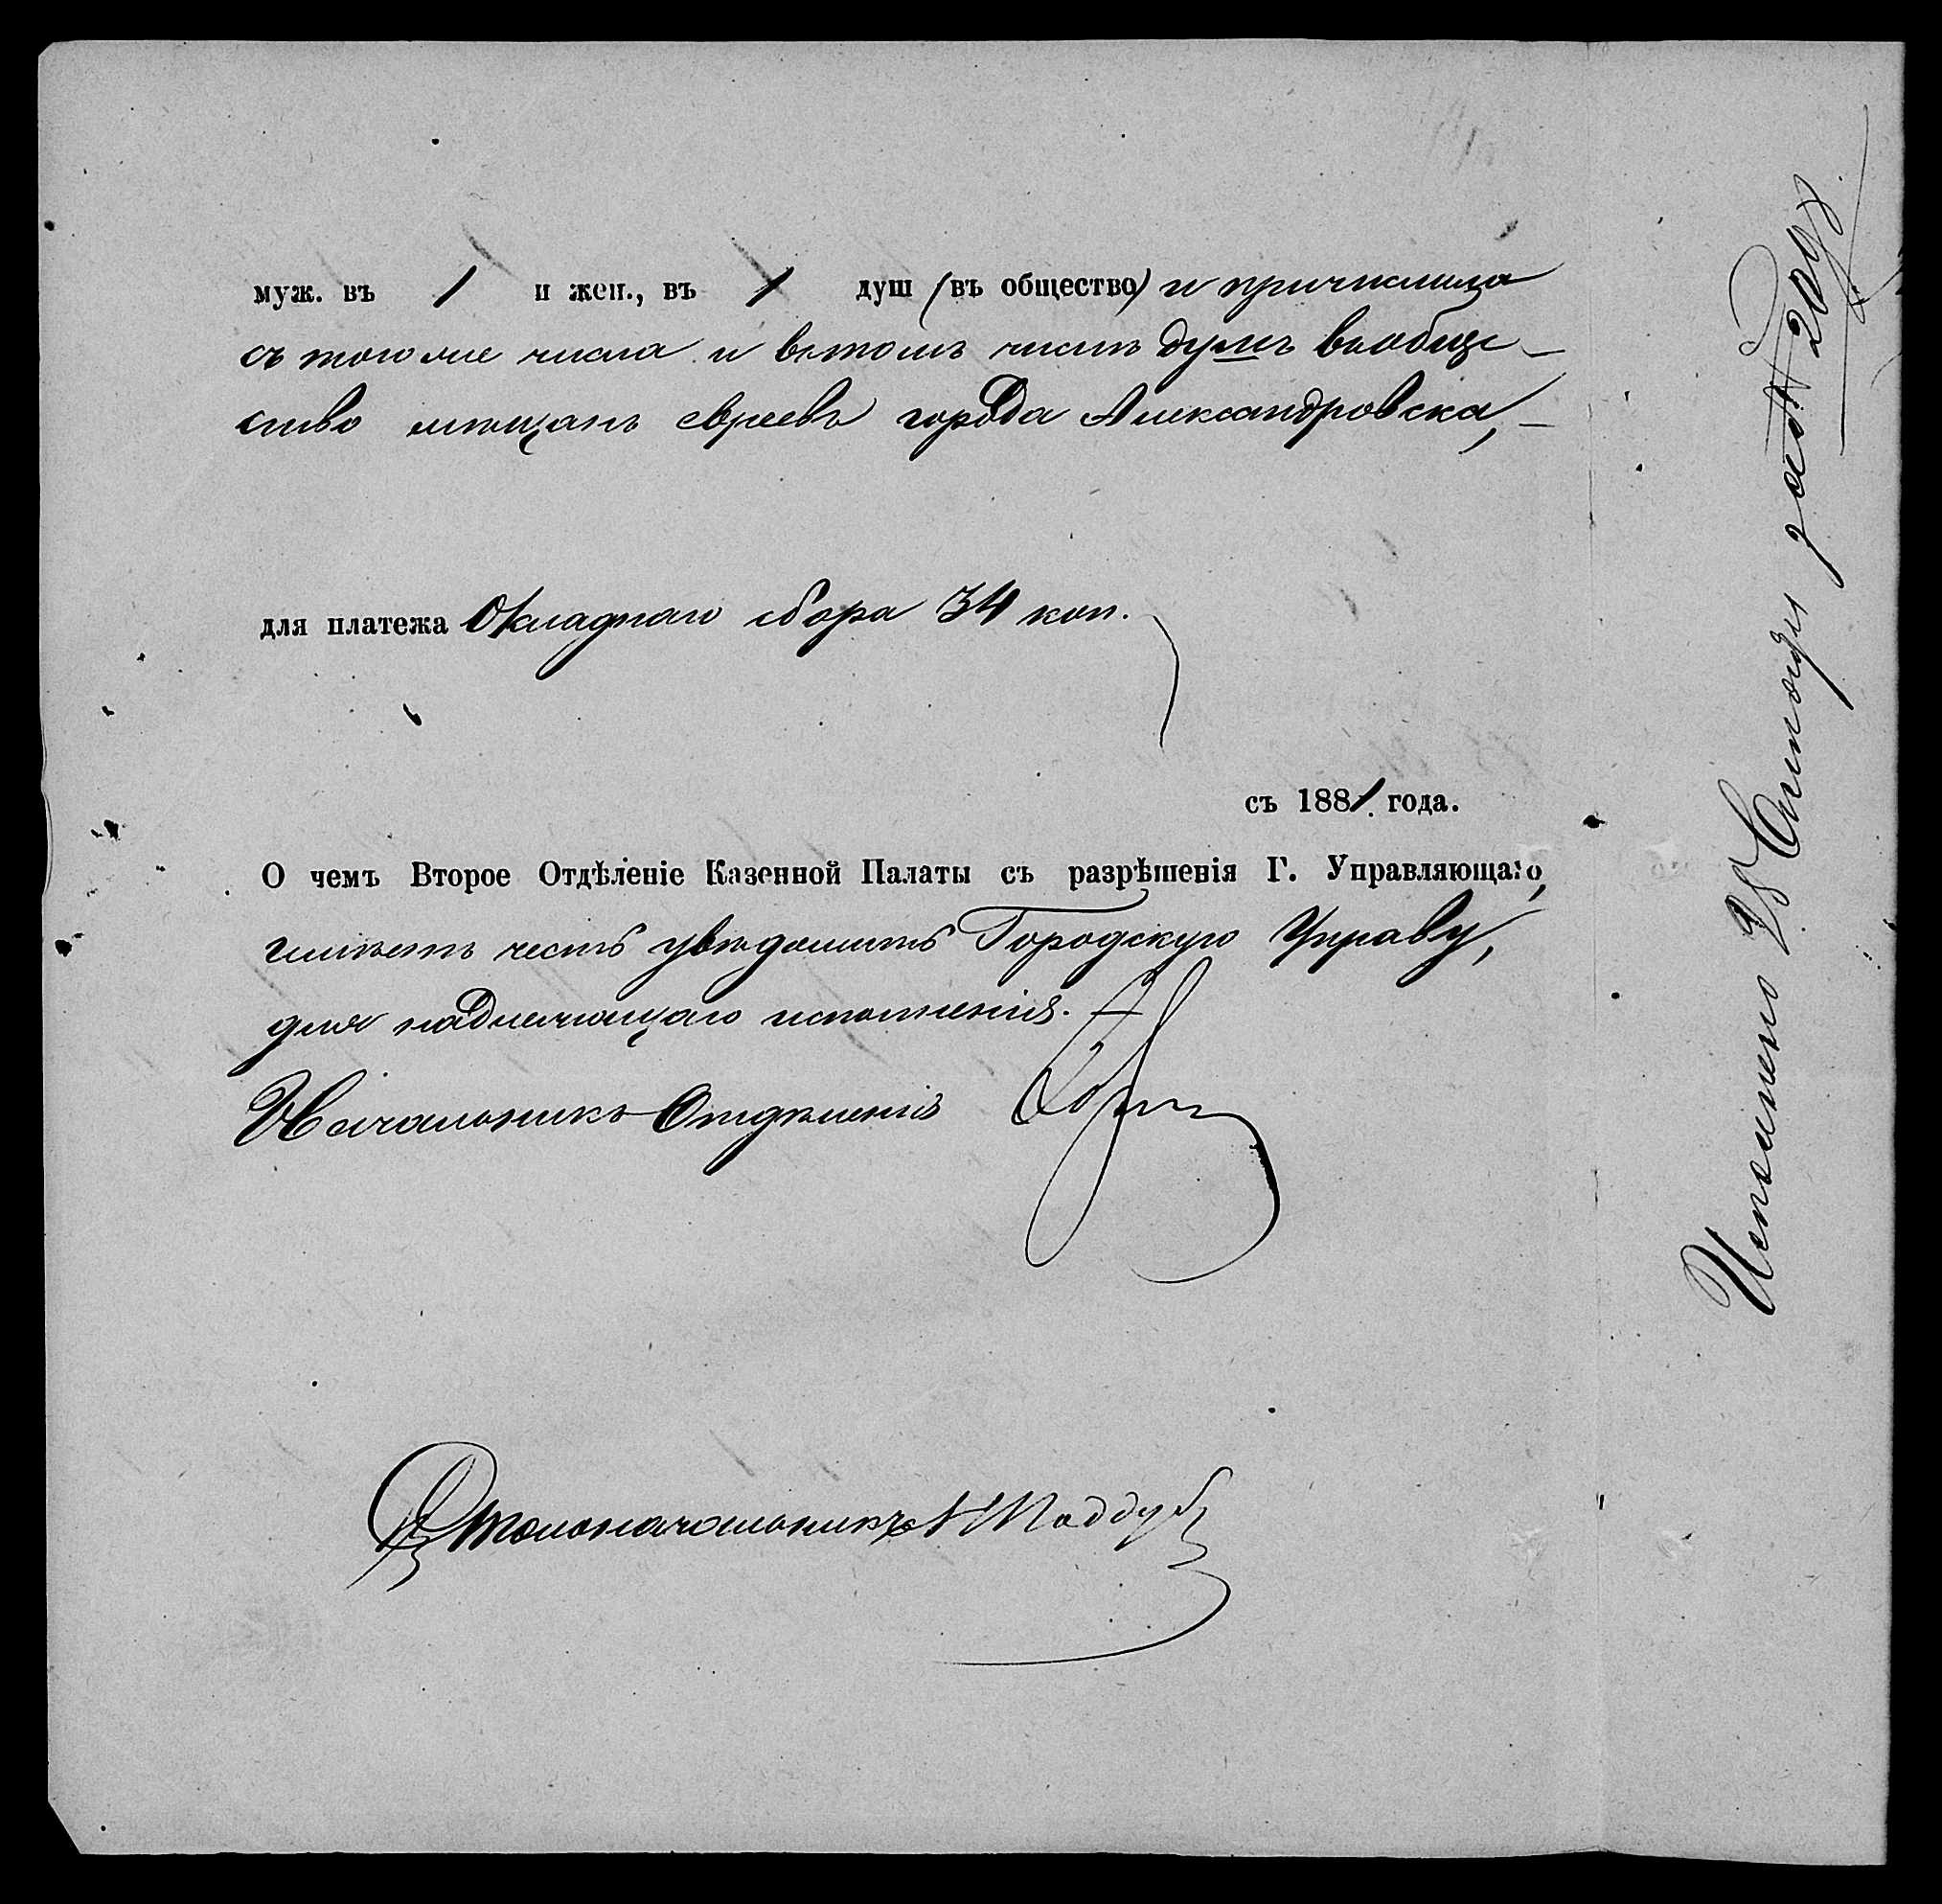 муж. въ 1 и жен., въ 1 душ (въ общество) и причислила
съ того же числа и въ томъ числѣ душъ въ обще-
ство мѣщанъ евреевъ города Александровска, —
для платежа Окладнаго сбора 34 коп.
съ 1881 года.
О чемъ Второе Отдѣленіе Казенной Палаты съ разрѣшенія Г. Управляющаго,
имѣетъ честь увѣдомить Городскую Управу,
для надлежащаго исполненія. —
Начальникъ Отдѣленія
Столоначальникъ Поддуб
Исполнено 28 Октября за № 2019